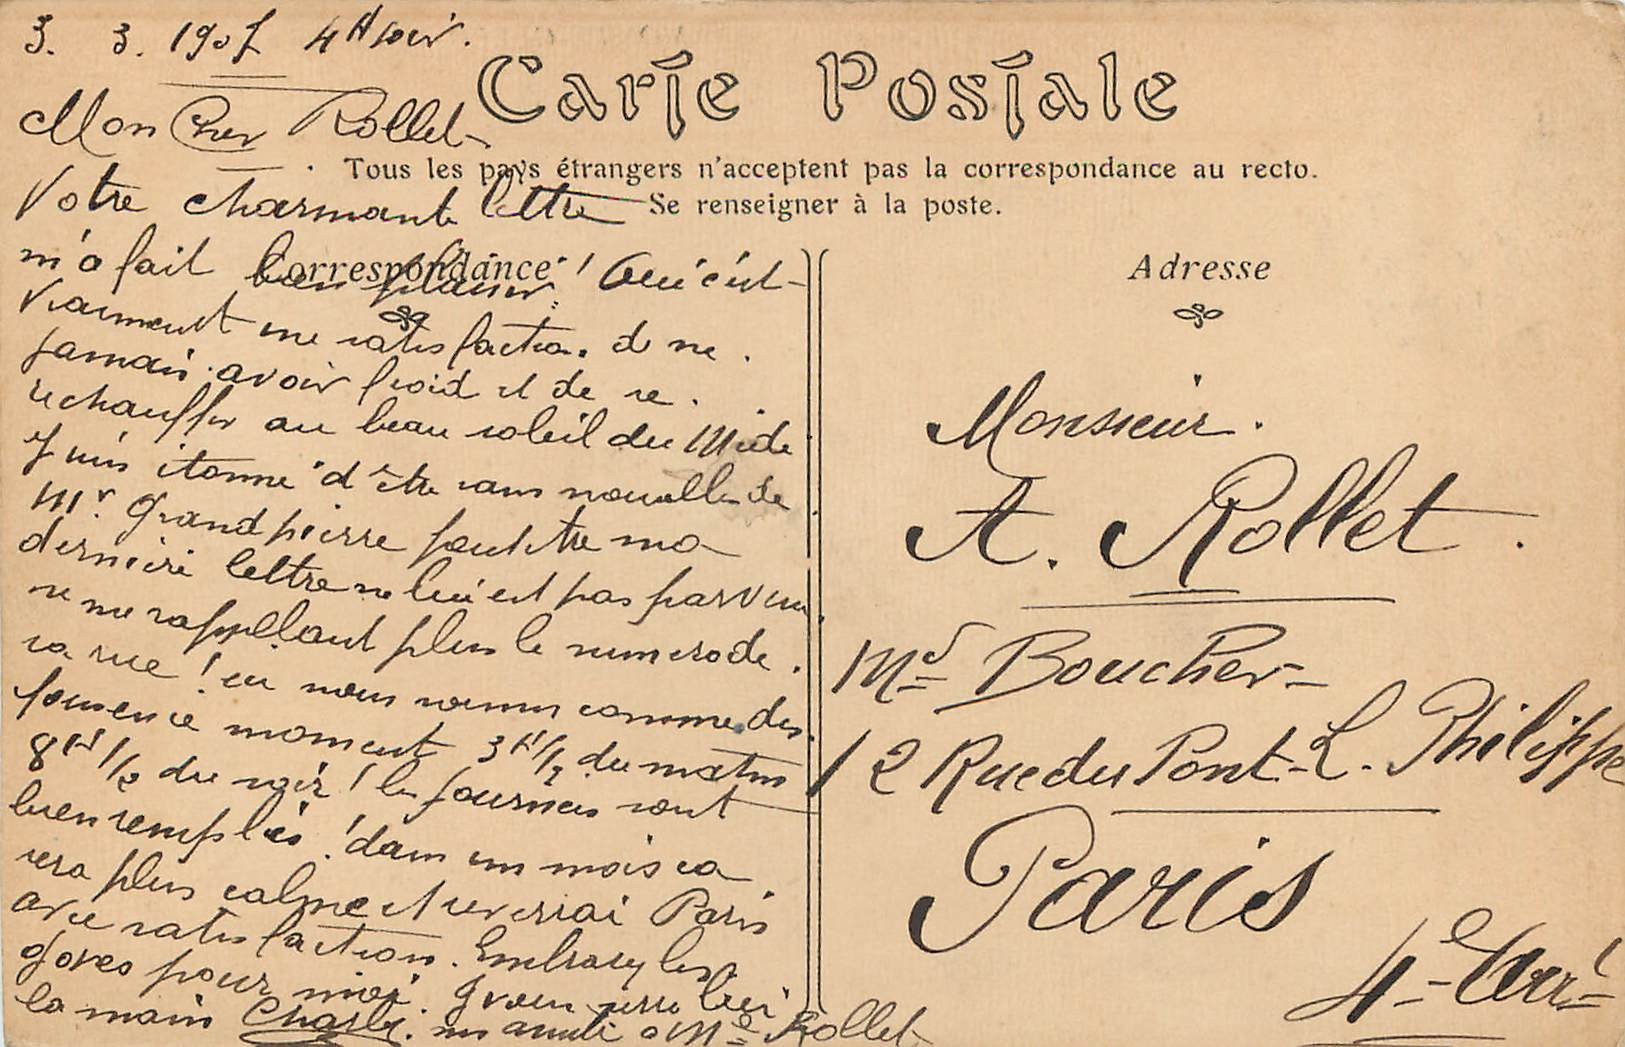 3. 3. 1907 4H soir.
Carte Postale
Mon Cher Rollet
Tous les pays étrangers n'acceptent pas la correspondance au recto.
Se renseigner à la poste.
Votre charmante lettre
m'a fait bien plaisir ! Oui c'est
Correspondance
vraiment une satisfaction d ne
jamais avoir froid et de se
rechauffer au beau soleil du Midi
J suis étonné d'être sans nouvelles de
Mr. Grandpierre peut être ma
dernière lettre ne lui est pas parvenu
ne me rappellant plus le numero de
sa rue ! ici nous sommes comme des
fous en ce moment 3H 1/2 du matin
8H 1/2 du soir ! les journées sont
bien remplies ! dans un mois ca
sera plus calme et reverrai Paris
avec satisfaction. Embrassez les
gosses pour moi. J vous serre
la main Charly. mes amitiés a Me Rollet
Adresse
Monsieur.
A. Rollet.
Md Boucher
12 Rue du Pont-L. Philippe
Paris
4e Arrt